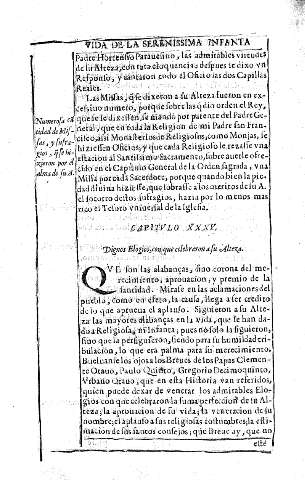 VIDA DE LA SERENISSIMA INFANTA
Padre Hortensio Paraveſino, las admirables virtudes
de ſu Alteza, con tata eloquencia: deſpues ſe dixo vn
Reſponſo, y cantaron todo el Oficio las dos Capillas
Reales.
Las Miſſas, q̃ ſe dixeron a ſu Alteza fueron en ex-
ceſsiuo numero, porque ſobre las q̃ dio orden el Rey,
que ſe le dixeſſen, ſe mandó por patente del Padre Ge-
neral, que en toda la Religion de mi Padre ſan Fran-
ciſco, aſsi Monaſterios de Religioſos, como Monjas, ſe
hizieſſen Oficios, y que cada Religioſo le rezaſſe vna
eſtacion al Santiſsimo Sacramento, ſobre auerle ofre-
cido en el Capitulo General de la Orden ſagrada, vna
Miſſa por cada Sacerdote, porque quando bien la pie-
dad diuina hizieſſe, que ſobraſſe a los meritos de ſu A.
el ſocorro deſtos ſufragios, hazia por lo menos mas
rico el Teſoro vniuerſal de la Igleſia.
Numeroſa cã
tidad de Miſ-
ſas, y ſufra-
gios, q̃ ſe hi-
zieron por el
alma de ſu A.
CAPITVLO XXXV.
Dignos Elogios, con que celebraron a ſu Alteza.
QVE ſon las alabanças, ſino corona del me-
recimiento, aprouacion, y premio de la
ſantidad. Miraſe en las aclamaciones del
pueblo, como en efeto, la cauſa, llega a ſer credito
de lo que aprueua el aplauſo. Siguieron a ſu Alteza
las mayores alabanças en la vida, que ſe han da-
do a Religioſa, ni Infanta, pues no ſolo la ſiguieron,
ſino que la perſiguieron, ſiendo para ſu humildad tri-
bulacion, lo que era palma para ſu merecimiento.
Bueluanſe los ojos a los Breues de los Papas Clemen-
te Octauo, Paulo Quinto, Gregorio Decimoquinto,
Vrbano Octauo, que en eſta Hiſtoria van referidos,
quien puede dexar de venerar los admirables Elo-
gios con que celebraron la ſuma perfeccion de ſu Al-
teza; la aprouacion de ſu vida; la veneracion de ſu
nombre; el aplauſo a ſus religioſas coſtumbres; la eſti-
macion de ſus ſantos conſejos; que Breue ay, que no
eſté